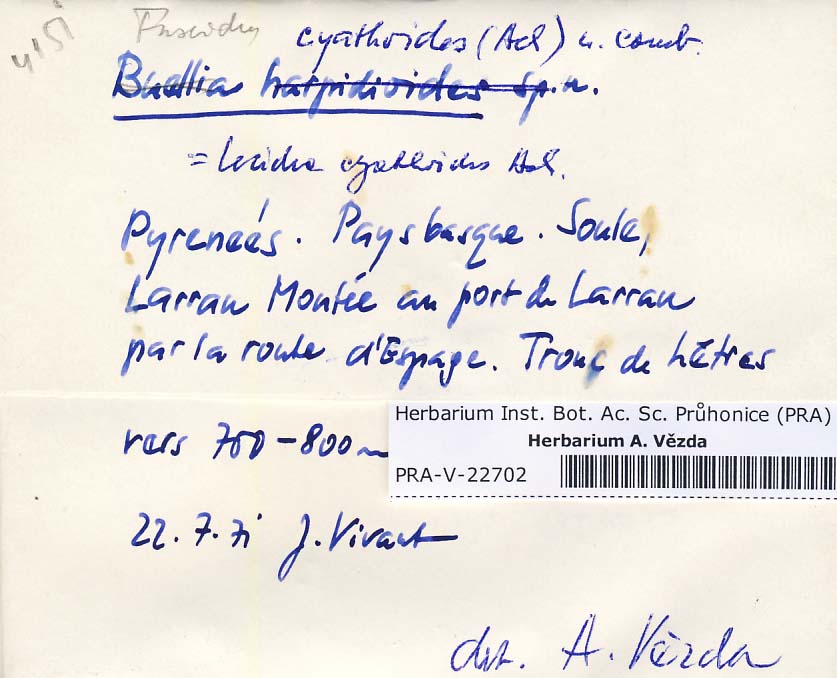 4151 Fuscidea cyathoides (Ach) n. comb.
Buellia harpidioides sp. n.
= Lecidea cyathoides Ach.
Pyreneés. Pays basque. Soule,
Larrau Montée au port de Larrau
par la route d'Espage. Tronç de hêtres
vers 750-800 m
Herbarium Inst. Bot. Ac. Sc. Průhonice (PRA)
Herbarium A. Vězda
PRA-V-22702
22.7.71 J. Vivant
det. A. Vězda